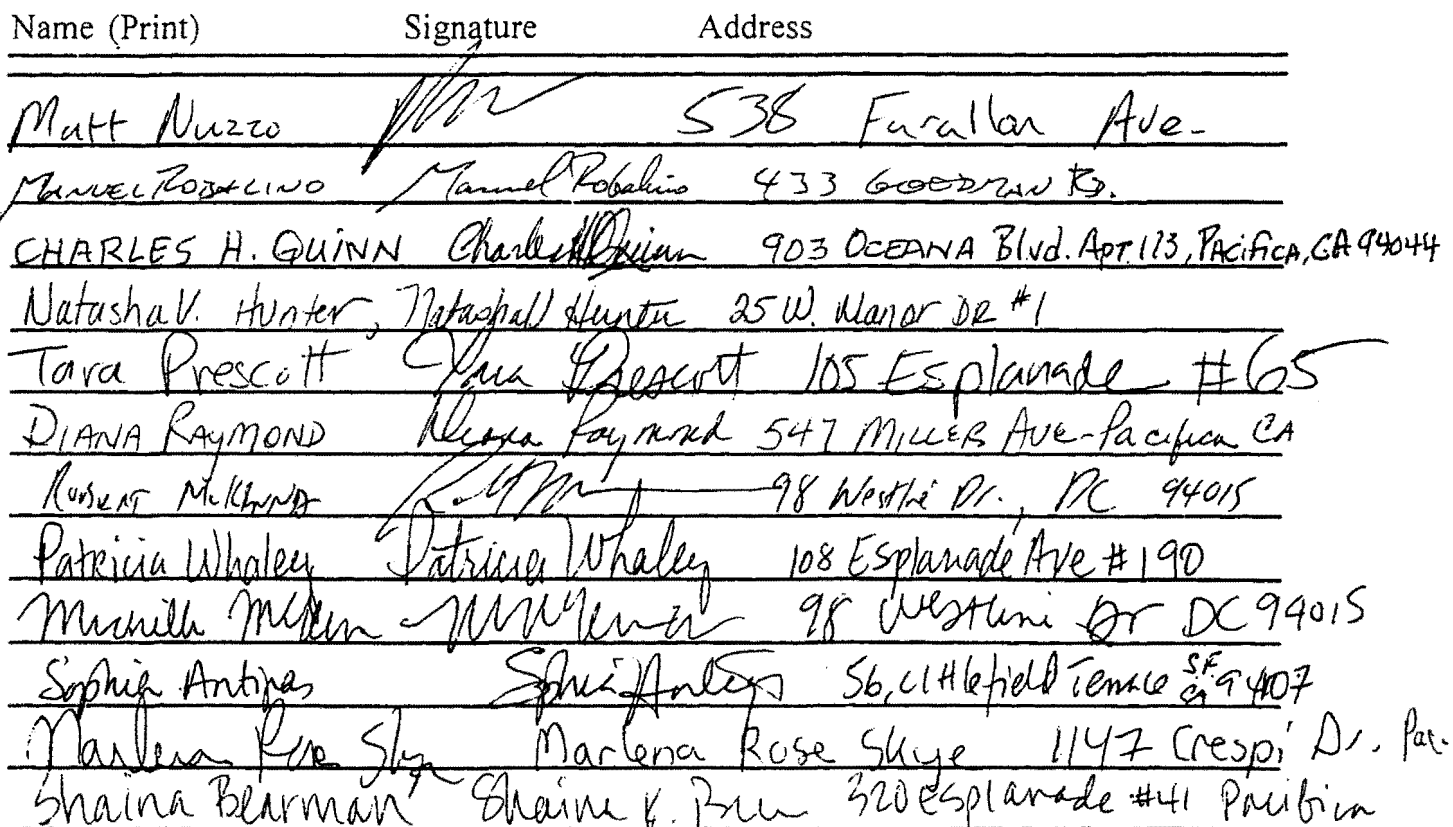 Name (Print) Signature Address
Matt Nuzzo 538 Farallon Ave.
MANUEL ROBALINO Manuel Robalino 433 GOODMAN RD.
CHARLES H. QUINN Charles H Quinn 903 OCEANA Blvd. APT. 113, PACIFICA, CA 94044
Natasha V. Hunter, Natasha V Hunter 25 W. Manor DR #1
Tara Prescott Tara Prescott 105 Esplanade #65
DIANA RAYMOND Diana Raymond 547 MILLER AVE-Pacifica CA
ROBERT McKENNA 98 Westline Dr., DC 94015
Patricia Whaley Patricia Whaley 108 Esplanade Ave #190
Michelle 98 Westline Dr DC 94015
Sophia Antipas Sophia Antipas 56, Littlefield Terrace S.F. CA 94107
Marlena Rose Skye Marlena Rose Skye 1147 Crespi Dr. Pac.
Shaina Bearman Shaina K. 320 Esplanade #41 Pacifica